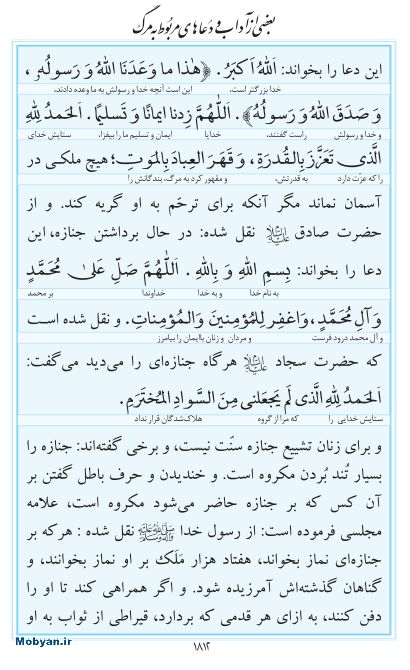 بعضی از آداب و دعاهای مربوط به مرگ
این دعا را بخواند: اَللّٰهُ اَکبَرُ. ﴿هٰذا ما وَعَدَنَا اللّٰهُ وَ رَسولُهُ،
خدا بزرگتر است، این است آنچه خدا و رسولش به ما وعده دادند،
وَ صَدَقَ اللّٰهُ وَ رَسولُهُ﴾. اَللّٰهُمَّ زِدنا ایمانًا وَ تَسلیمًا. اَلحَمدُ لِلّٰهِ
و خدا و رسولش راست گفتند، خدایا ایمان و تسلیم ما را بیفزا، ستایش خدای
الَّذی تَعَزَّزَ بِالقُدرَةِ، وَ قَهَرَ العِبادَ بِالمَوتِ؛ هیچ ملکی در
را که عزت دارد به قدرتش، و مقهور کرد به مرگ، بندگانش را
آسمان نماند مگر آنکه برای ترحّم به او گریه کند. و از
حضرت صادق علیه‌السلام نقل شده: در حال برداشتن جنازه، این
دعا را بخواند: بِسمِ اللّٰهِ وَ بِاللّٰهِ. اَللّٰهُمَّ صَلِّ عَلیٰ مُحَمَّدٍ
به نام خدا و به خدا خداوندا بر محمد
وَ آلِ مُحَمَّدٍ، وَاغفِر لِلمُؤمِنینَ وَالمُؤمِناتِ. و نقل شده است
و آل محمد درود فرست و مردان و زنان باایمان را بیامرز
که حضرت سجاد علیه‌السلام هرگاه جنازه‌ای را می‌دید می‌گفت:
اَلحَمدُ لِلّٰهِ الَّذی لَم یَجعَلنی مِنَ السَّوادِ المُختَرَمِ.
ستایش خدایی را که مرا از گروه هلاک‌شدگان قرار نداد
و برای زنان تشییع جنازه سنّت نیست، و برخی گفته‌اند: جنازه را
بسیار تُند بُردن مکروه است. و خندیدن و حرف باطل گفتن بر
آن کس که بر جنازه حاضر می‌شود مکروه است، علامه
مجلسی فرموده است: از رسول خدا صلی‌الله‌علیه‌وآله‌وسلم نقل شده : هرکه بر
جنازه‌ای نماز بخواند، هفتاد هزار مَلَک بر او نماز بخوانند، و
گناهان گذشته‌اش آمرزیده شود. و اگر همراهی کند تا او را
دفن کنند، به ازای هر قدمی که بردارد، قیراطی از ثواب به او
۱۸۱۲
Mobyan.ir